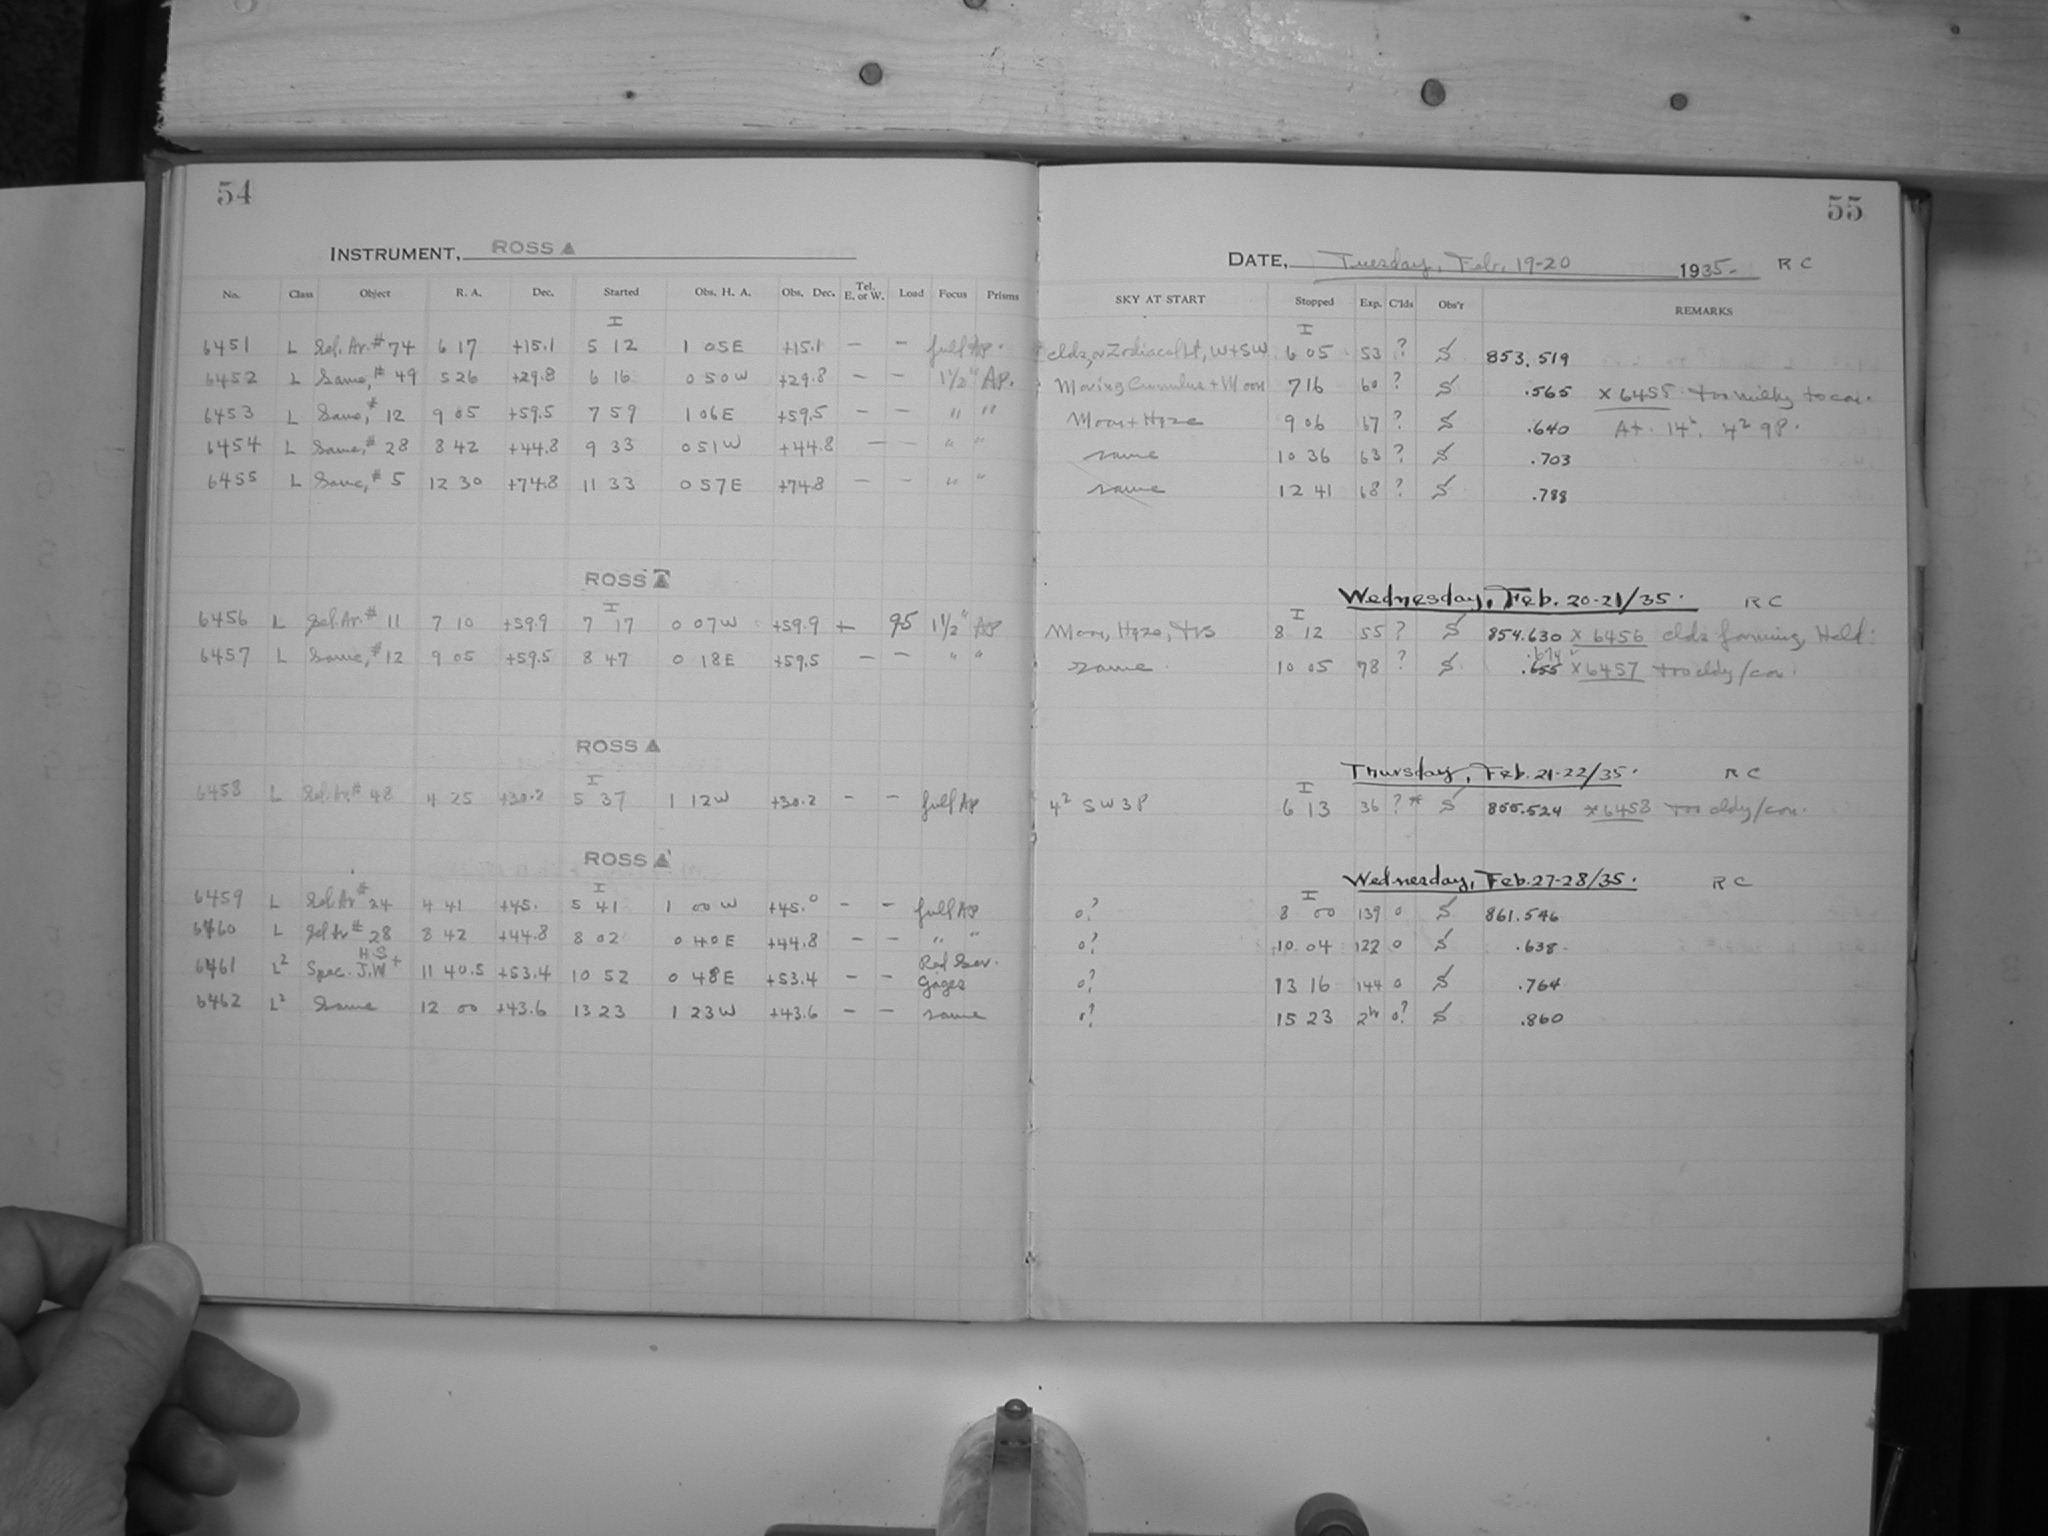 54
INSTRUMENT, ROSS A
No. Class Object R. A. Dec. Started Obs. H. A. Obs. Dec. Tel. E. or W. Load Focus Prisms
I
6451 L Sel. Ar. # 74 6 17 +15.1 5 12 1 05E +15.1 — — full Ap.
6452 L Same, # 49 5 26 +29.8 6 16 0 50W +29.8 — — 1½" Ap.
6453 L Same, # 12 9 05 +59.5 7 59 1 06E +59.5 — — " "
6454 L Same, # 28 8 42 +44.8 9 33 0 51W +44.8 — — " "
6455 L Same, # 5 12 30 +74.8 11 33 0 57E +74.8 — — " "
ROSS A
I
6456 L Sel. Ar. # 11 7 10 +59.9 7 17 0 07W +59.9 — 95 1½" Ap
6457 L Same, # 12 9 05 +59.5 8 47 0 18E +59.5 — — " "
ROSS A
I
6458 L Sel. Ar. # 48 4 25 +30.2 5 37 1 12W +30.2 — — full Ap
ROSS A
I
6459 L Sel Ar # 24 4 41 +45. 5 41 1 00 W +45.0 — — full Ap
6460 L Sel Ar # 28 8 42 +44.8 8 02 0 40E +44.8 — — " "
6461 L² Spec. J.W + H.S 11 40.5 +53.4 10 52 0 48E +53.4 — — Red
6462 L² Same 12 00 +43.6 13 23 1 23W +43.6 — — same
55
DATE, Tuesday, Feb. 19-20 1935. R C
SKY AT START Stopped Exp. C'lds Obs'r REMARKS
I
clds, or Zodiacal Lt, W+SW 6 05 53 ? S 853.519
Moving Cumulus + Moon 7 16 60 ? S .565 x 6455 too milky to con.
Moon + Haze 9 06 67 ? S .640 At 14
same 10 36 63 ? S .703
same 12 41 68 ? S .788
Wednesday, Feb. 20-21/35. R C
I
Moon, Haze, 8 12 55 ? S 854.630 x 6456 clds forming, Held.
same 10 05 78 ? S .655 .674 x 6457 too cldy/con.
Thursday, Feb. 21-22/35. R C
I
4² SW 3P 6 13 36 ? * S 855.524 x 6458 too cldy/con.
Wednesday, Feb. 27-28/35. R C
I
0? 8 00 139 0 S 861.546
0? 10 04 122 0 S .638
0? 13 16 144 0 S .764
0? 15 23 2h 0? S .860